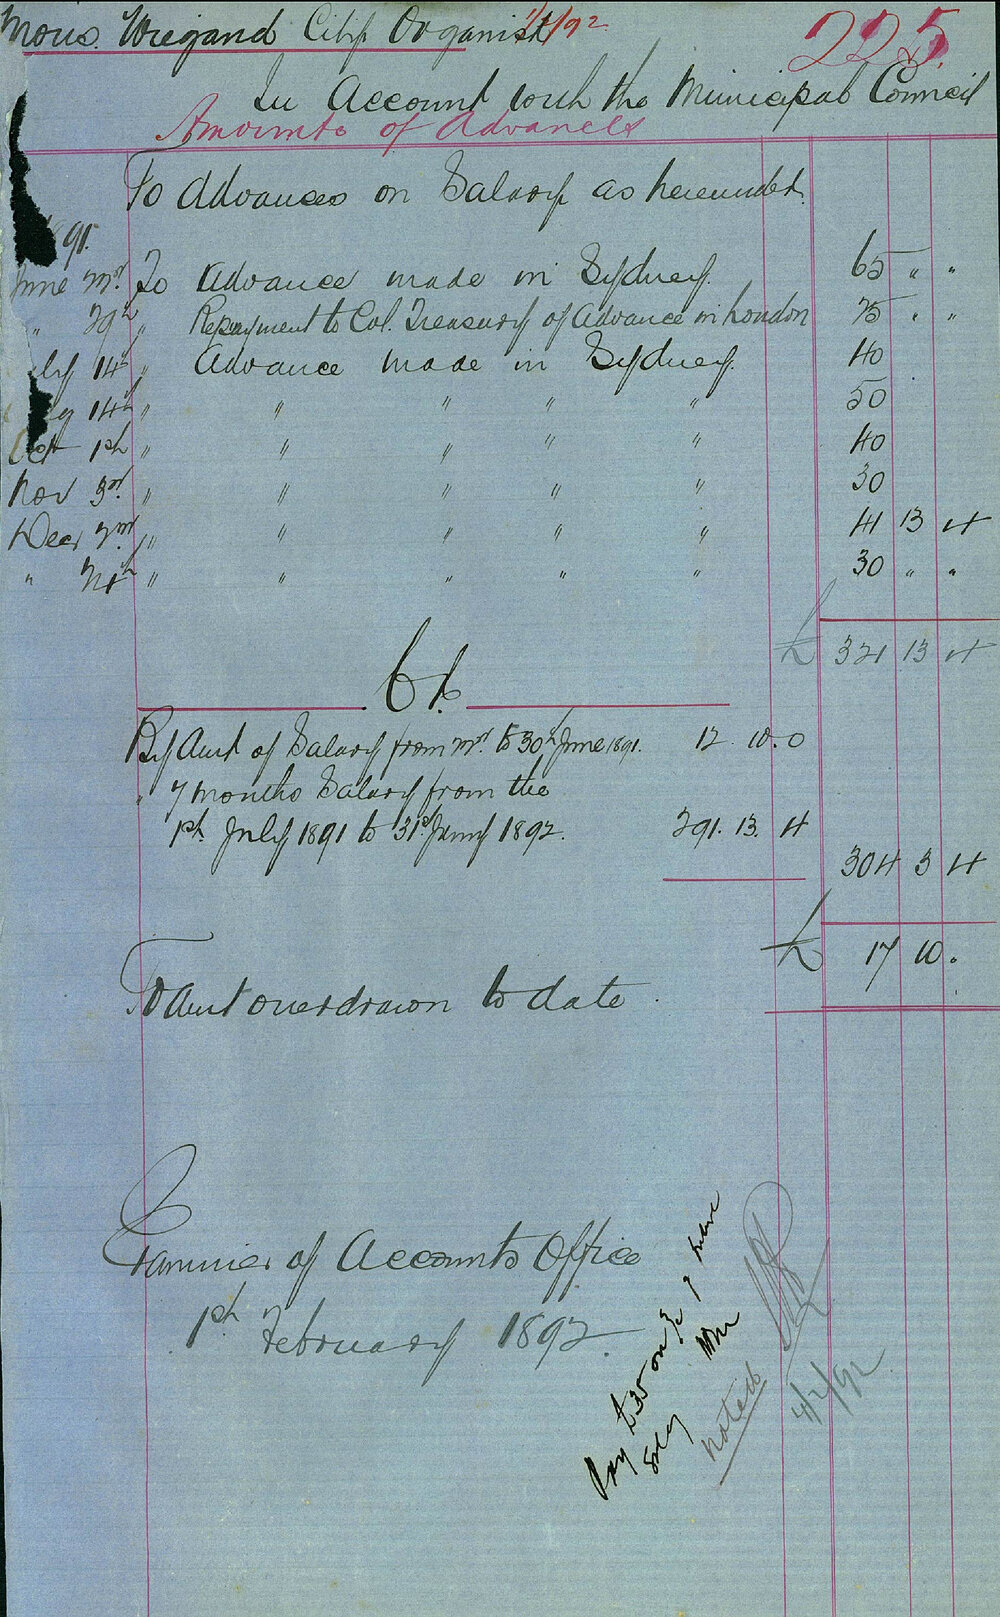 Mons. Wiegand City Organist 1/2/92
225
In Account with the Municipal Council
Amounts of Advances
To Advances on Salary as hereunder.
91.
June 22nd. To Advance made in Sydney. 65 " "
" 29th " Repayment to Col. Treasury of Advance in London 25 " "
ly 14th " Advance made in Sydney. 40
g 14th " " " " " 50
Oct 1st " " " " " 40
Nov 3rd. " " " " " 30
Decr 2nd. " " " " " 41 13 4
" 24th " " " " " 30 " "
£ 321 13 4
Cr.
By Amt of Salary from 22nd. to 30th June 1891. 12 10. 0
" 7 months Salary from the
1st. July 1891 to 31st Jany 1892. 291. 13. 4
304 3 4
£ 17 10.
To Amt overdrawn to date
Examiner of Accounts Office
1st February 1892
Pay £35 on
noted
4/2/92